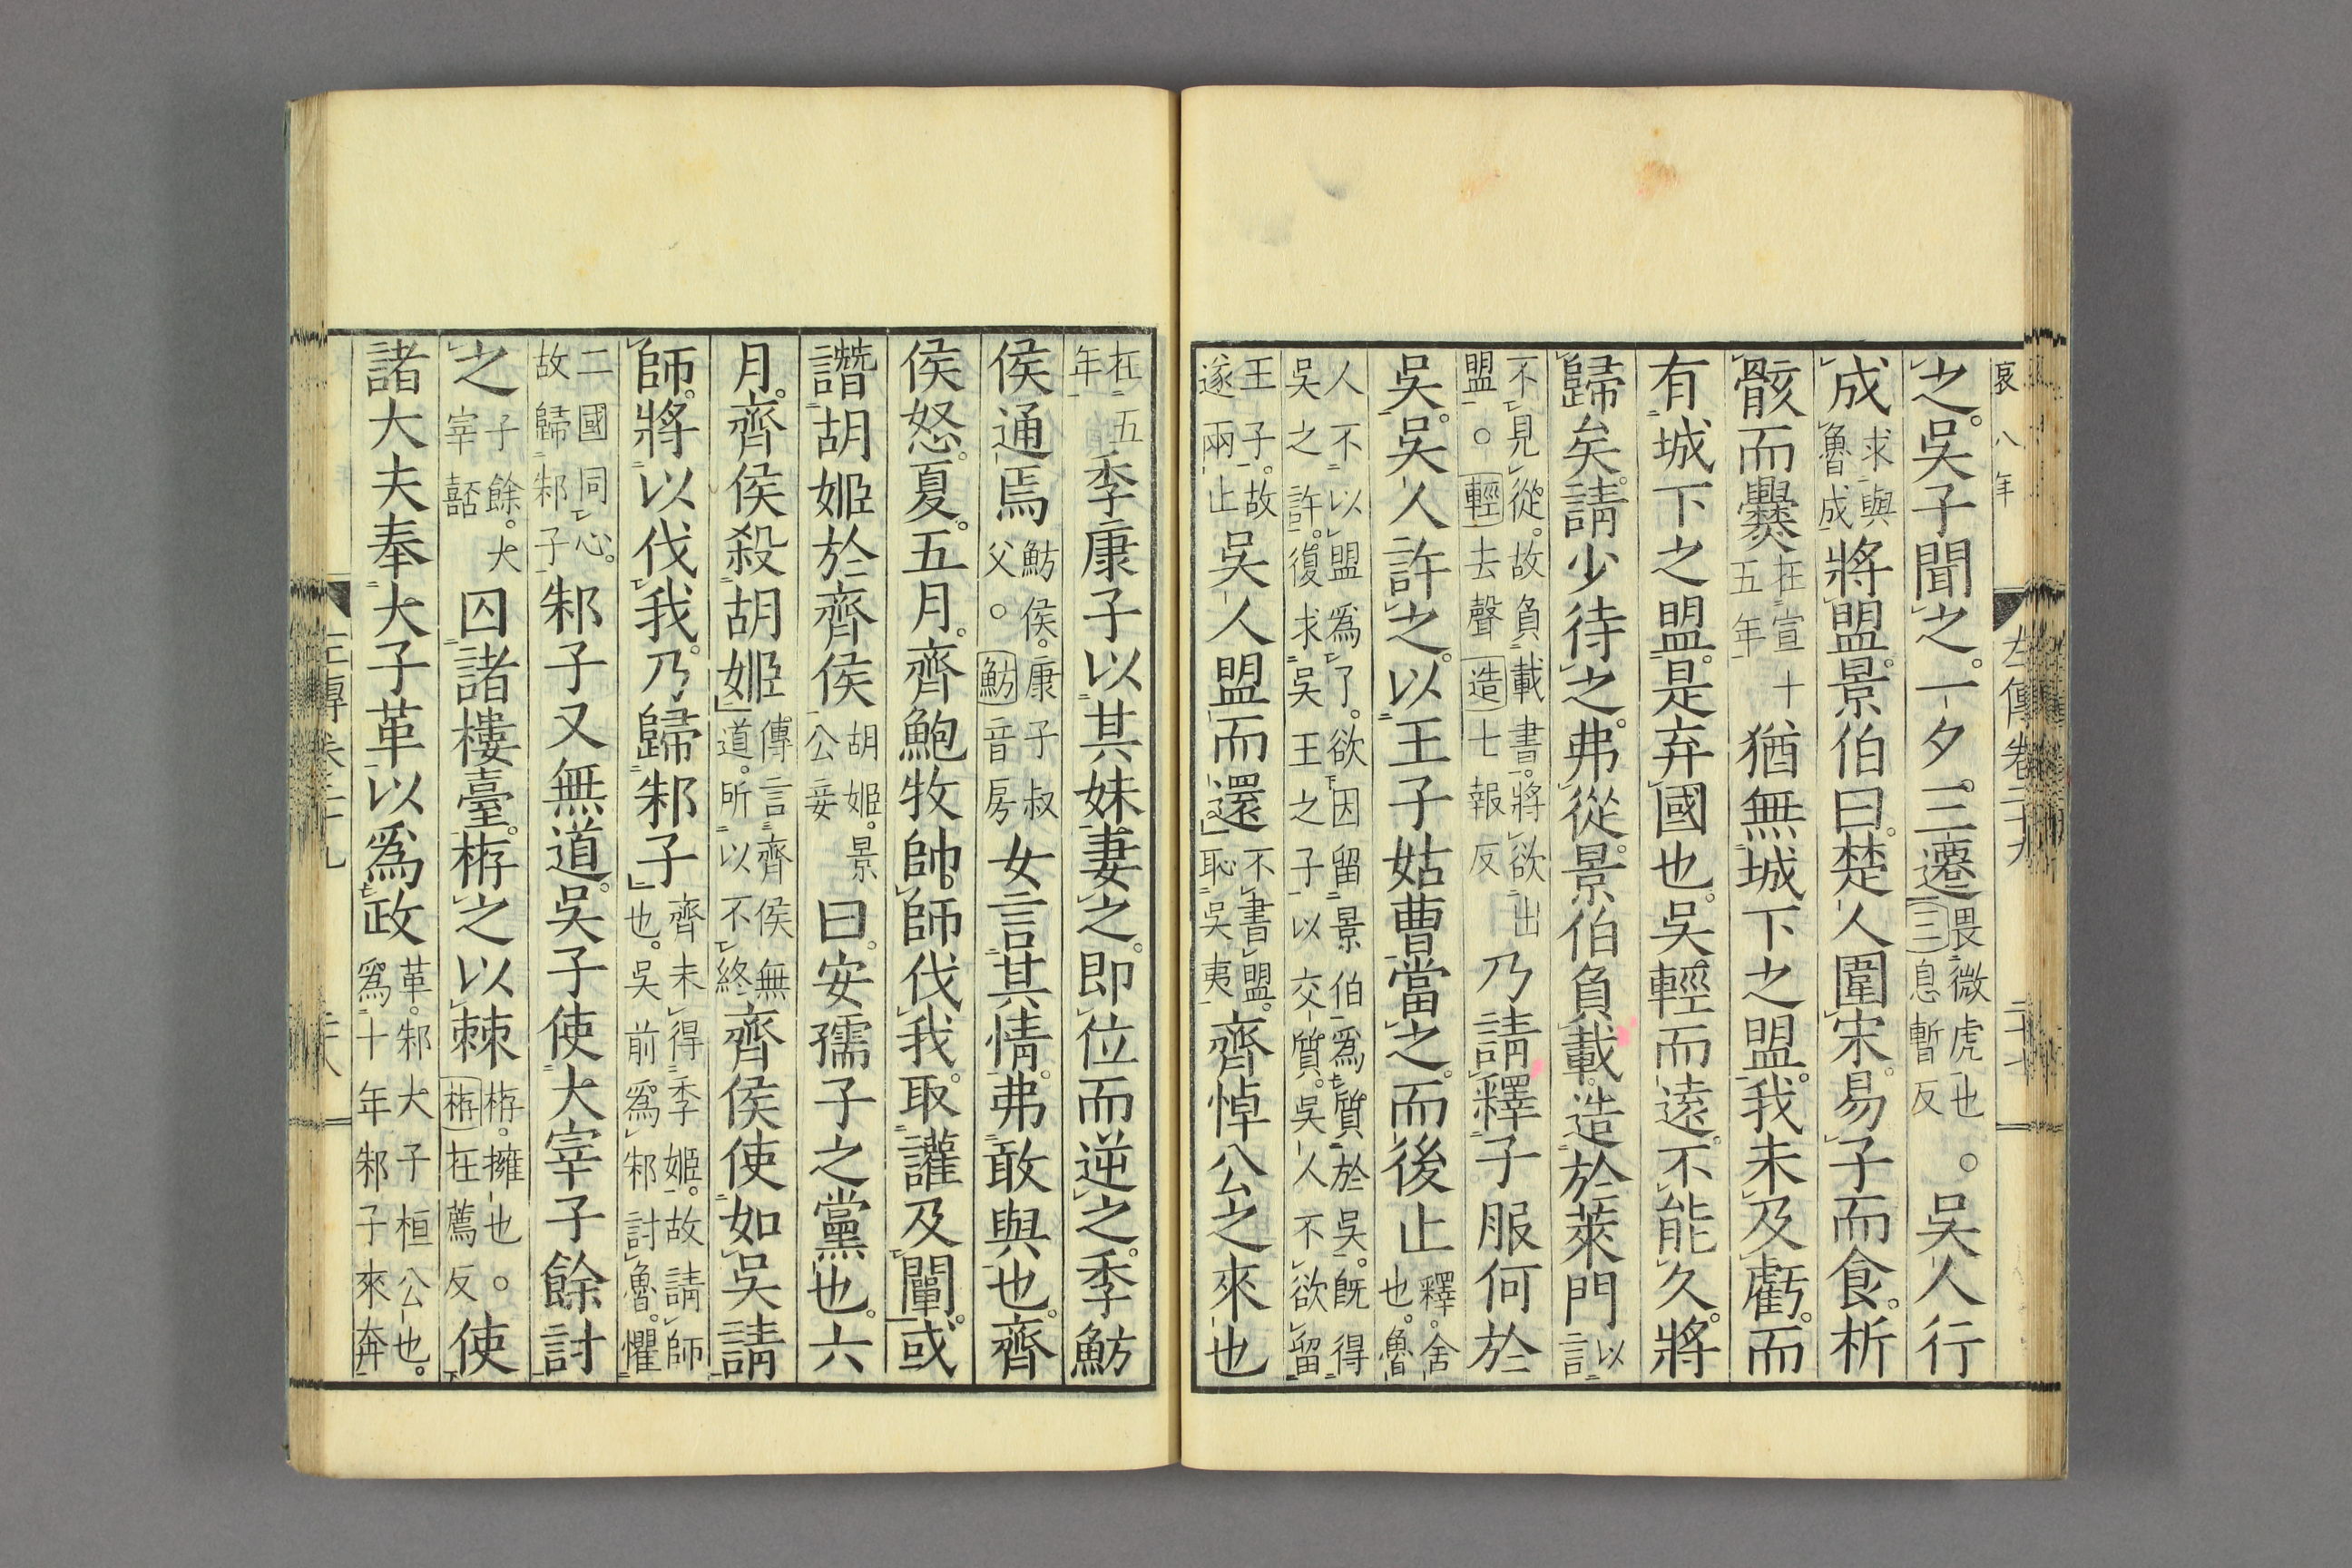 哀八年 左傳卷二十九 二十七
之。吳子聞之。一夕。三遷畏微虎也三息暫反○吳人行
成求與魯成將盟。景伯曰。楚人圍宋。易子而食。析
骸而爨在宣十五年猶無城下之盟。我未及虧。而
有城下之盟。是弃國也。吳輕而遠。不能久。將
歸矣。請少待之。弗從。景伯負載。造於萊門以言
不見從。故負載書。將欲出盟。○輕去聲造七報反乃請釋子服何於
吳。吳人許之。以王子姑曹當之。而後止釋。舍也。魯
人不以盟爲了。欲因留景伯爲質於吳。既得吳之許。復求吳王之子以交質。吳人不欲留
王子。故遂兩止吳人盟而還不書盟。恥吳夷齊悼公之來也
在五年季康子以其妹妻之。即位而逆之。季魴
侯通焉魴侯。康子叔父。○魴音房女言其情。弗敢與也。齊
侯怒。夏。五月。齊鮑牧帥師伐我。取讙及闡。或
譖胡姬於齊侯胡姬。景公妾曰。安孺子之黨也。六
月。齊侯殺胡姬傳言齊侯無道。所以不終齊侯使如吳請
師。將以伐我。乃歸邾子齊未得季姬。故請師也。吳前爲邾討魯。懼
二國同心。故歸邾子邾子又無道。吳子使大宰子餘討
之子餘。大宰嚭囚諸樓臺。栫之以棘栫。擁也。○栫在薦反使
諸大夫奉大子革以爲政革。邾大子桓公也。爲十年邾子來奔